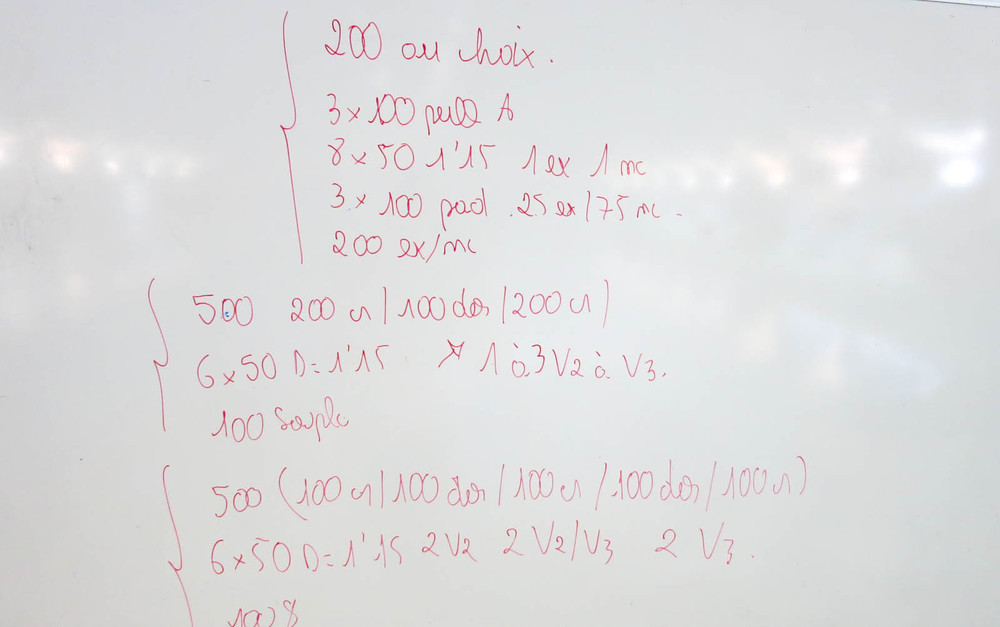 200 au choix.
3 x 100 pull A
8 x 50 1'15 1 ex 1 mc
3 x 100 pad .25 ex/75 mc.
200 ex/mc
500 200 cr/100 dos/200 cr)
6 x 50 D=1'15 1 à 3 V2 à V3.
100 Souple
500 (100 cr/100 dos/100 cr/100 dos/100 cr)
6 x 50 D=1'15 2V2 2 V2/V3 2 V3.
100 S